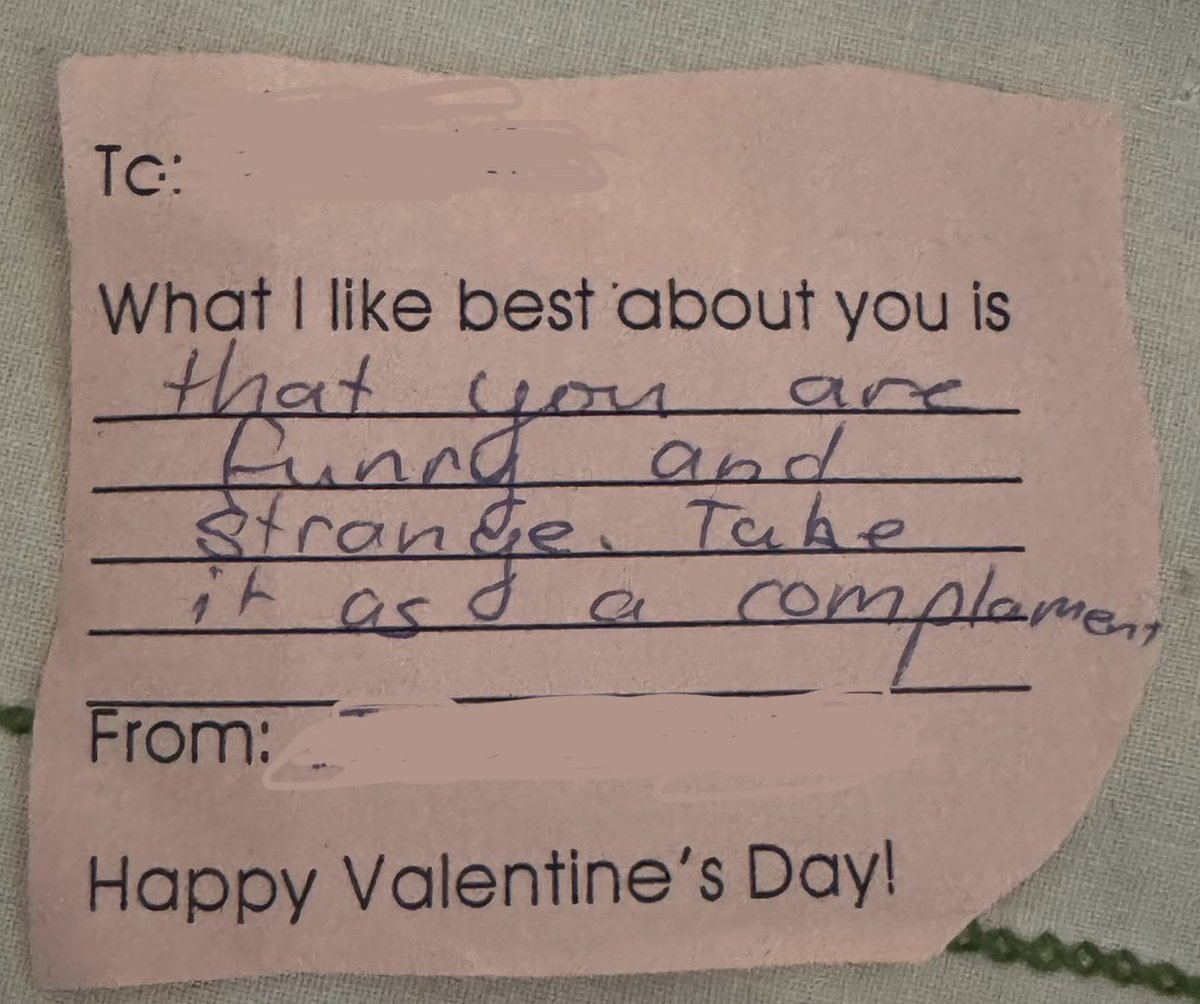 To:
What I like best about you is
that you are
funny and
strange. Take
it as a complament
From:
Happy Valentine's Day!